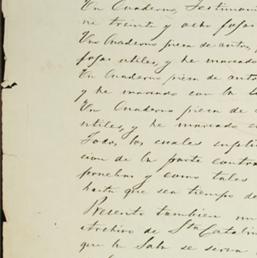 Un Cuaderno, Testimoni
ne treinta y ocho fojas
Un Cuaderno pieza de autos,
fojas utiles, y he marcado
Un Cuaderno pieza de auto
y he marcado con la l
Un Cuaderno pieza de a
utiles, y he marcado c
Todos los cuales suplic
cion de la parte contra
ponchas y como tales
hasta que sea tiempo de
Presento tambien un
Archivo de Sta Catalin
que la Sala se sirva